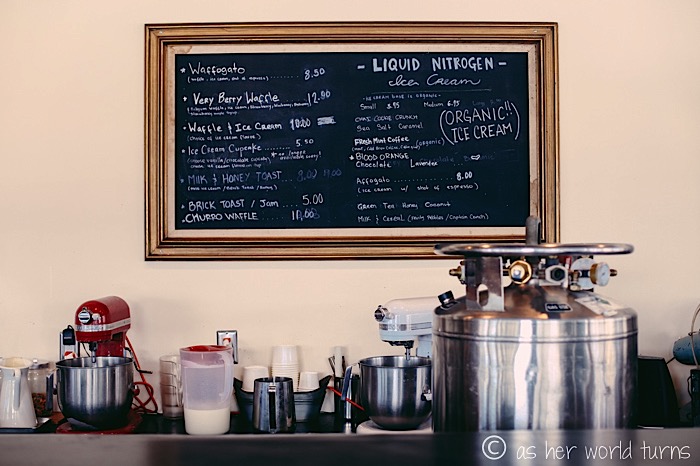 Waffogato ........ 8.50
(waffle, ice cream, shot of espresso)
Very Berry Waffle ... 12.00
Waffle & Ice Cream 10.00
(choice of ice cream flavor)
Ice Cream Cupcake ........ 5.50
MILK & HONEY TOAST ... 8.00
BRICK TOAST / Jam ..... 5.00
CHURRO WAFFLE ........ 10.00
- LIQUID NITROGEN -
Ice Cream
- ice cream base is organic -
Small 5.95 Medium 6.95
CRUNCH
Sea Salt Caramel
(ORGANIC!!
ICE CREAM)
Fresh Mint Coffee
BLOOD ORANGE
Chocolate Lavender
Affogato .......... 8.00
(ice cream w/ shot of espresso)
Green Tea Honey Coconut
Milk & Cereal (Fruity Pebbles / Captain Crunch)
© as her world turns